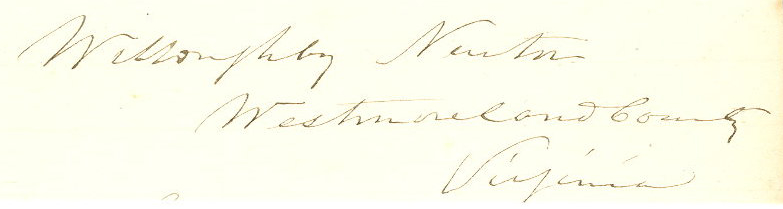 Willoughby Newton
Westmoreland County
Virginia